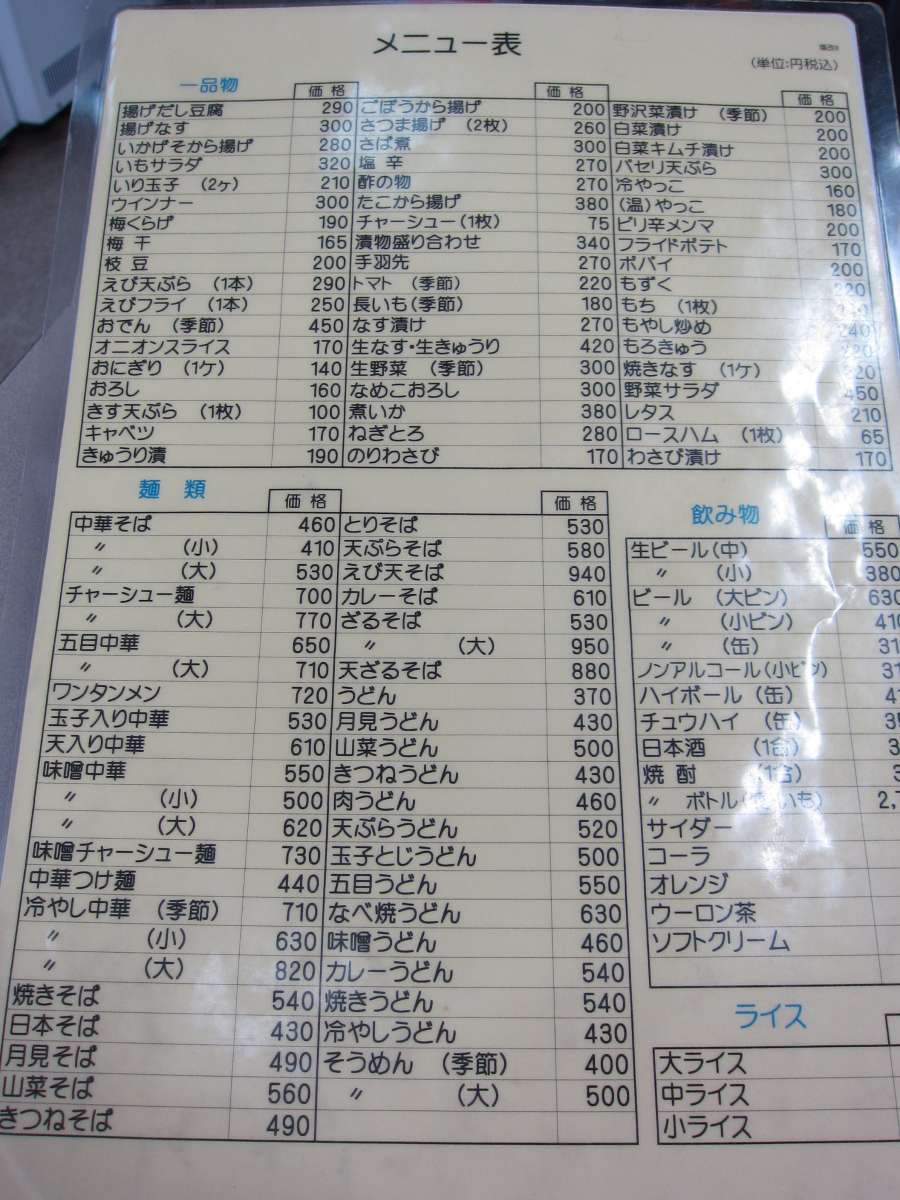 メニュー表
(単位:円税込)
一品物 価格 価格 価格
揚げだし豆腐 290 ごぼうから揚げ 200 野沢菜漬け (季節) 200
揚げなす 300 さつま揚げ (2枚) 260 白菜漬け 200
いかげそから揚げ 280 さば煮 300 白菜キムチ漬け 200
いもサラダ 320 塩辛 270 パセリ天ぷら 300
いり玉子 (2ケ) 210 酢の物 270 冷やっこ 160
ウインナー 300 たこから揚げ 380 (温)やっこ 180
梅くらげ 190 チャーシュー(1枚) 75 ピリ辛メンマ 200
梅干 165 漬物盛り合わせ 340 フライドポテト 170
枝豆 200 手羽先 270 ポパイ 200
えび天ぷら (1本) 290 トマト (季節) 220 もずく 220
えびフライ (1本) 250 長いも(季節) 180 もち (1枚)
おでん (季節) 450 なす漬け 270 もやし炒め 240
オニオンスライス 170 生なす・生きゅうり 420 もろきゅう 220
おにぎり (1ケ) 140 生野菜 (季節) 300 焼きなす (1ケ) 220
おろし 160 なめこおろし 300 野菜サラダ 450
きす天ぷら (1枚) 100 煮いか 380 レタス 210
キャベツ 170 ねぎとろ 280 ロースハム (1枚) 65
きゅうり漬 190 のりわさび 170 わさび漬け 170
麺類 価格 価格
中華そば 460 とりそば 530
〃 (小) 410 天ぷらそば 580
〃 (大) 530 えび天そば 940
チャーシュー麺 700 カレーそば 610
〃 (大) 770 ざるそば 530
五目中華 650 〃 (大) 950
〃 (大) 710 天ざるそば 880
ワンタンメン 720 うどん 370
玉子入り中華 530 月見うどん 430
天入り中華 610 山菜うどん 500
味噌中華 550 きつねうどん 430
〃 (小) 500 肉うどん 460
〃 (大) 620 天ぷらうどん 520
味噌チャーシュー麺 730 玉子とじうどん 500
中華つけ麺 440 五目うどん 550
冷やし中華 (季節) 710 なべ焼うどん 630
〃 (小) 630 味噌うどん 460
〃 (大) 820 カレーうどん 540
焼きそば 540 焼きうどん 540
日本そば 430 冷やしうどん 430
月見そば 490 そうめん (季節) 400
山菜そば 560 〃 (大) 500
きつねそば 490
飲み物 価格
生ビール(中) 550
〃 (小) 380
ビール (大ビン) 630
〃 (小ビン) 410
〃 (缶) 31
ノンアルコール(小ビン) 31
ハイボール (缶) 41
チュウハイ (缶) 35
日本酒 (1合) 3
焼酎 (1合) 3
〃 ボトル 2,7
サイダー
コーラ
オレンジ
ウーロン茶
ソフトクリーム
ライス
大ライス
中ライス
小ライス